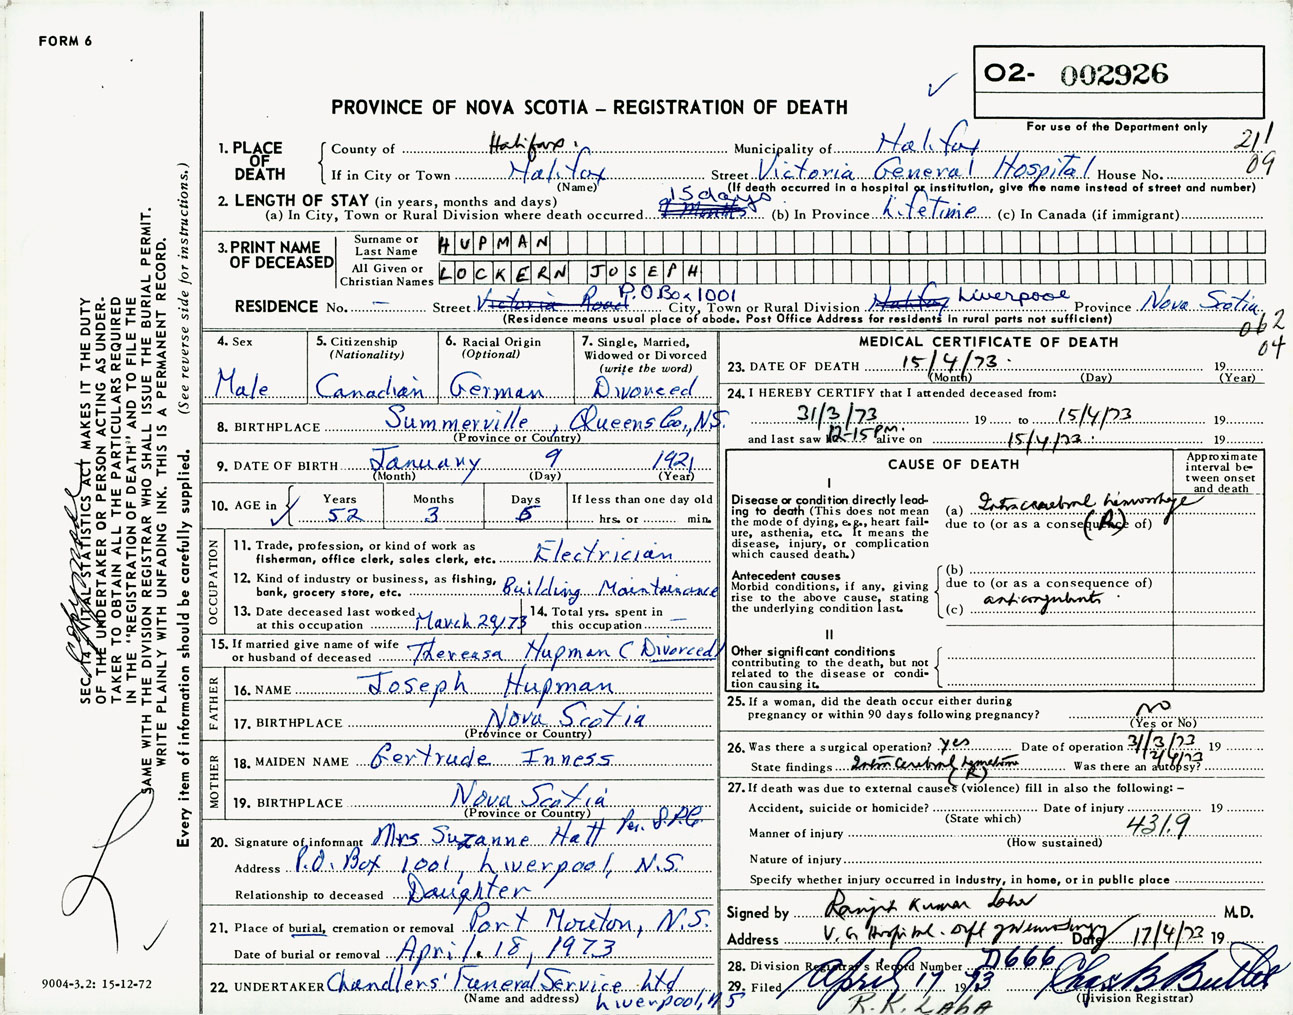 FORM 6
O2- 002926
PROVINCE OF NOVA SCOTIA – REGISTRATION OF DEATH
For use of the Department only
211
09
1. PLACE OF DEATH
County of Halifax. Municipality of Halifax
If in City or Town Halifax Street Victoria General Hospital House No.
(Name) (If death occurred in a hospital or institution, give the name instead of street and number)
2. LENGTH OF STAY (in years, months and days)
(a) In City, Town or Rural Division where death occurred 15 days (b) In Province Lifetime (c) In Canada (if immigrant)
3. PRINT NAME OF DECEASED
Surname or Last Name HUPMAN
All Given or Christian Names LOCKERN JOSEPH
RESIDENCE No. – Street Victoria Road P.O Box 1001 City, Town or Rural Division Halifax Liverpool Province Nova Scotia
(Residence means usual place of abode. Post Office Address for residents in rural parts not sufficient)
062
04
4. Sex Male
5. Citizenship (Nationality) Canadian
6. Racial Origin (Optional) German
7. Single, Married, Widowed or Divorced (write the word) Divorced
8. BIRTHPLACE Summerville, Queens Co., N.S.
(Province or Country)
9. DATE OF BIRTH January 9 1921
(Month) (Day) (Year)
10. AGE in Years 52 Months 3 Days 5 If less than one day old hrs. or min.
OCCUPATION
11. Trade, profession, or kind of work as fisherman, office clerk, sales clerk, etc. Electrician
12. Kind of industry or business, as fishing, bank, grocery store, etc. Building Maintainance
13. Date deceased last worked at this occupation March 29/73
14. Total yrs. spent in this occupation –
15. If married give name of wife or husband of deceased Thereasa Hupman (Divorced)
FATHER
16. NAME Joseph Hupman
17. BIRTHPLACE Nova Scotia
(Province or Country)
MOTHER
18. MAIDEN NAME Gertrude Inness
19. BIRTHPLACE Nova Scotia
(Province or Country)
20. Signature of informant Mrs Suzanne Hatt Per.
Address P.O. Box 1001, Liverpool, N.S.
Relationship to deceased Daughter
21. Place of burial, cremation or removal Port Mouton, N.S.
Date of burial or removal April. 18, 1973
22. UNDERTAKER Chandlers' Funeral Service Ltd
(Name and address) Liverpool, NS
MEDICAL CERTIFICATE OF DEATH
23. DATE OF DEATH 15/4/73. 19
(Month) (Day) (Year)
24. I HEREBY CERTIFY that I attended deceased from:
31/3/73 19 to 15/4/73 19
and last saw 12-15 P.M. alive on 15/4/73. 19
CAUSE OF DEATH
Approximate interval between onset and death
I
Disease or condition directly leading to death (This does not mean the mode of dying, e.g., heart failure, asthenia, etc. It means the disease, injury, or complication which caused death.)
(a) Intracerebral hemorrhage
due to (or as a consequence of) (R)
Antecedent causes
Morbid conditions, if any, giving rise to the above cause, stating the underlying condition last.
(b)
due to (or as a consequence of)
(c) anticoagulants
II
Other significant conditions contributing to the death, but not related to the disease or condition causing it.
25. If a woman, did the death occur either during pregnancy or within 90 days following pregnancy? No
(Yes or No)
26. Was there a surgical operation? yes Date of operation 31/3/73 19
2/4/73
State findings Intracerebral hematoma (R) Was there an autopsy?
27. If death was due to external causes (violence) fill in also the following: –
Accident, suicide or homicide? Date of injury 19
(State which) 431.9
Manner of injury
(How sustained)
Nature of injury
Specify whether injury occurred in Industry, in home, or in public place
Signed by Ranjit Kumar M.D.
Address V.G Hospital. Dept of Neurosurgery Date 17/4/73 19
28. Division Registrar's Record Number D666
29. Filed April 17 1973 Chas B Butler
(Division Registrar)
R.K. LAHA
SEC. 14 VITAL STATISTICS ACT MAKES IT THE DUTY
OF THE UNDERTAKER OR PERSON ACTING AS UNDER-
TAKER TO OBTAIN ALL THE PARTICULARS REQUIRED
IN THE "REGISTRATION OF DEATH" AND TO FILE THE
SAME WITH THE DIVISION REGISTRAR WHO SHALL ISSUE THE BURIAL PERMIT.
WRITE PLAINLY WITH UNFADING INK. THIS IS A PERMANENT RECORD.
Every item of information should be carefully supplied. (See reverse side for instructions.)
9004-3.2: 15-12-72